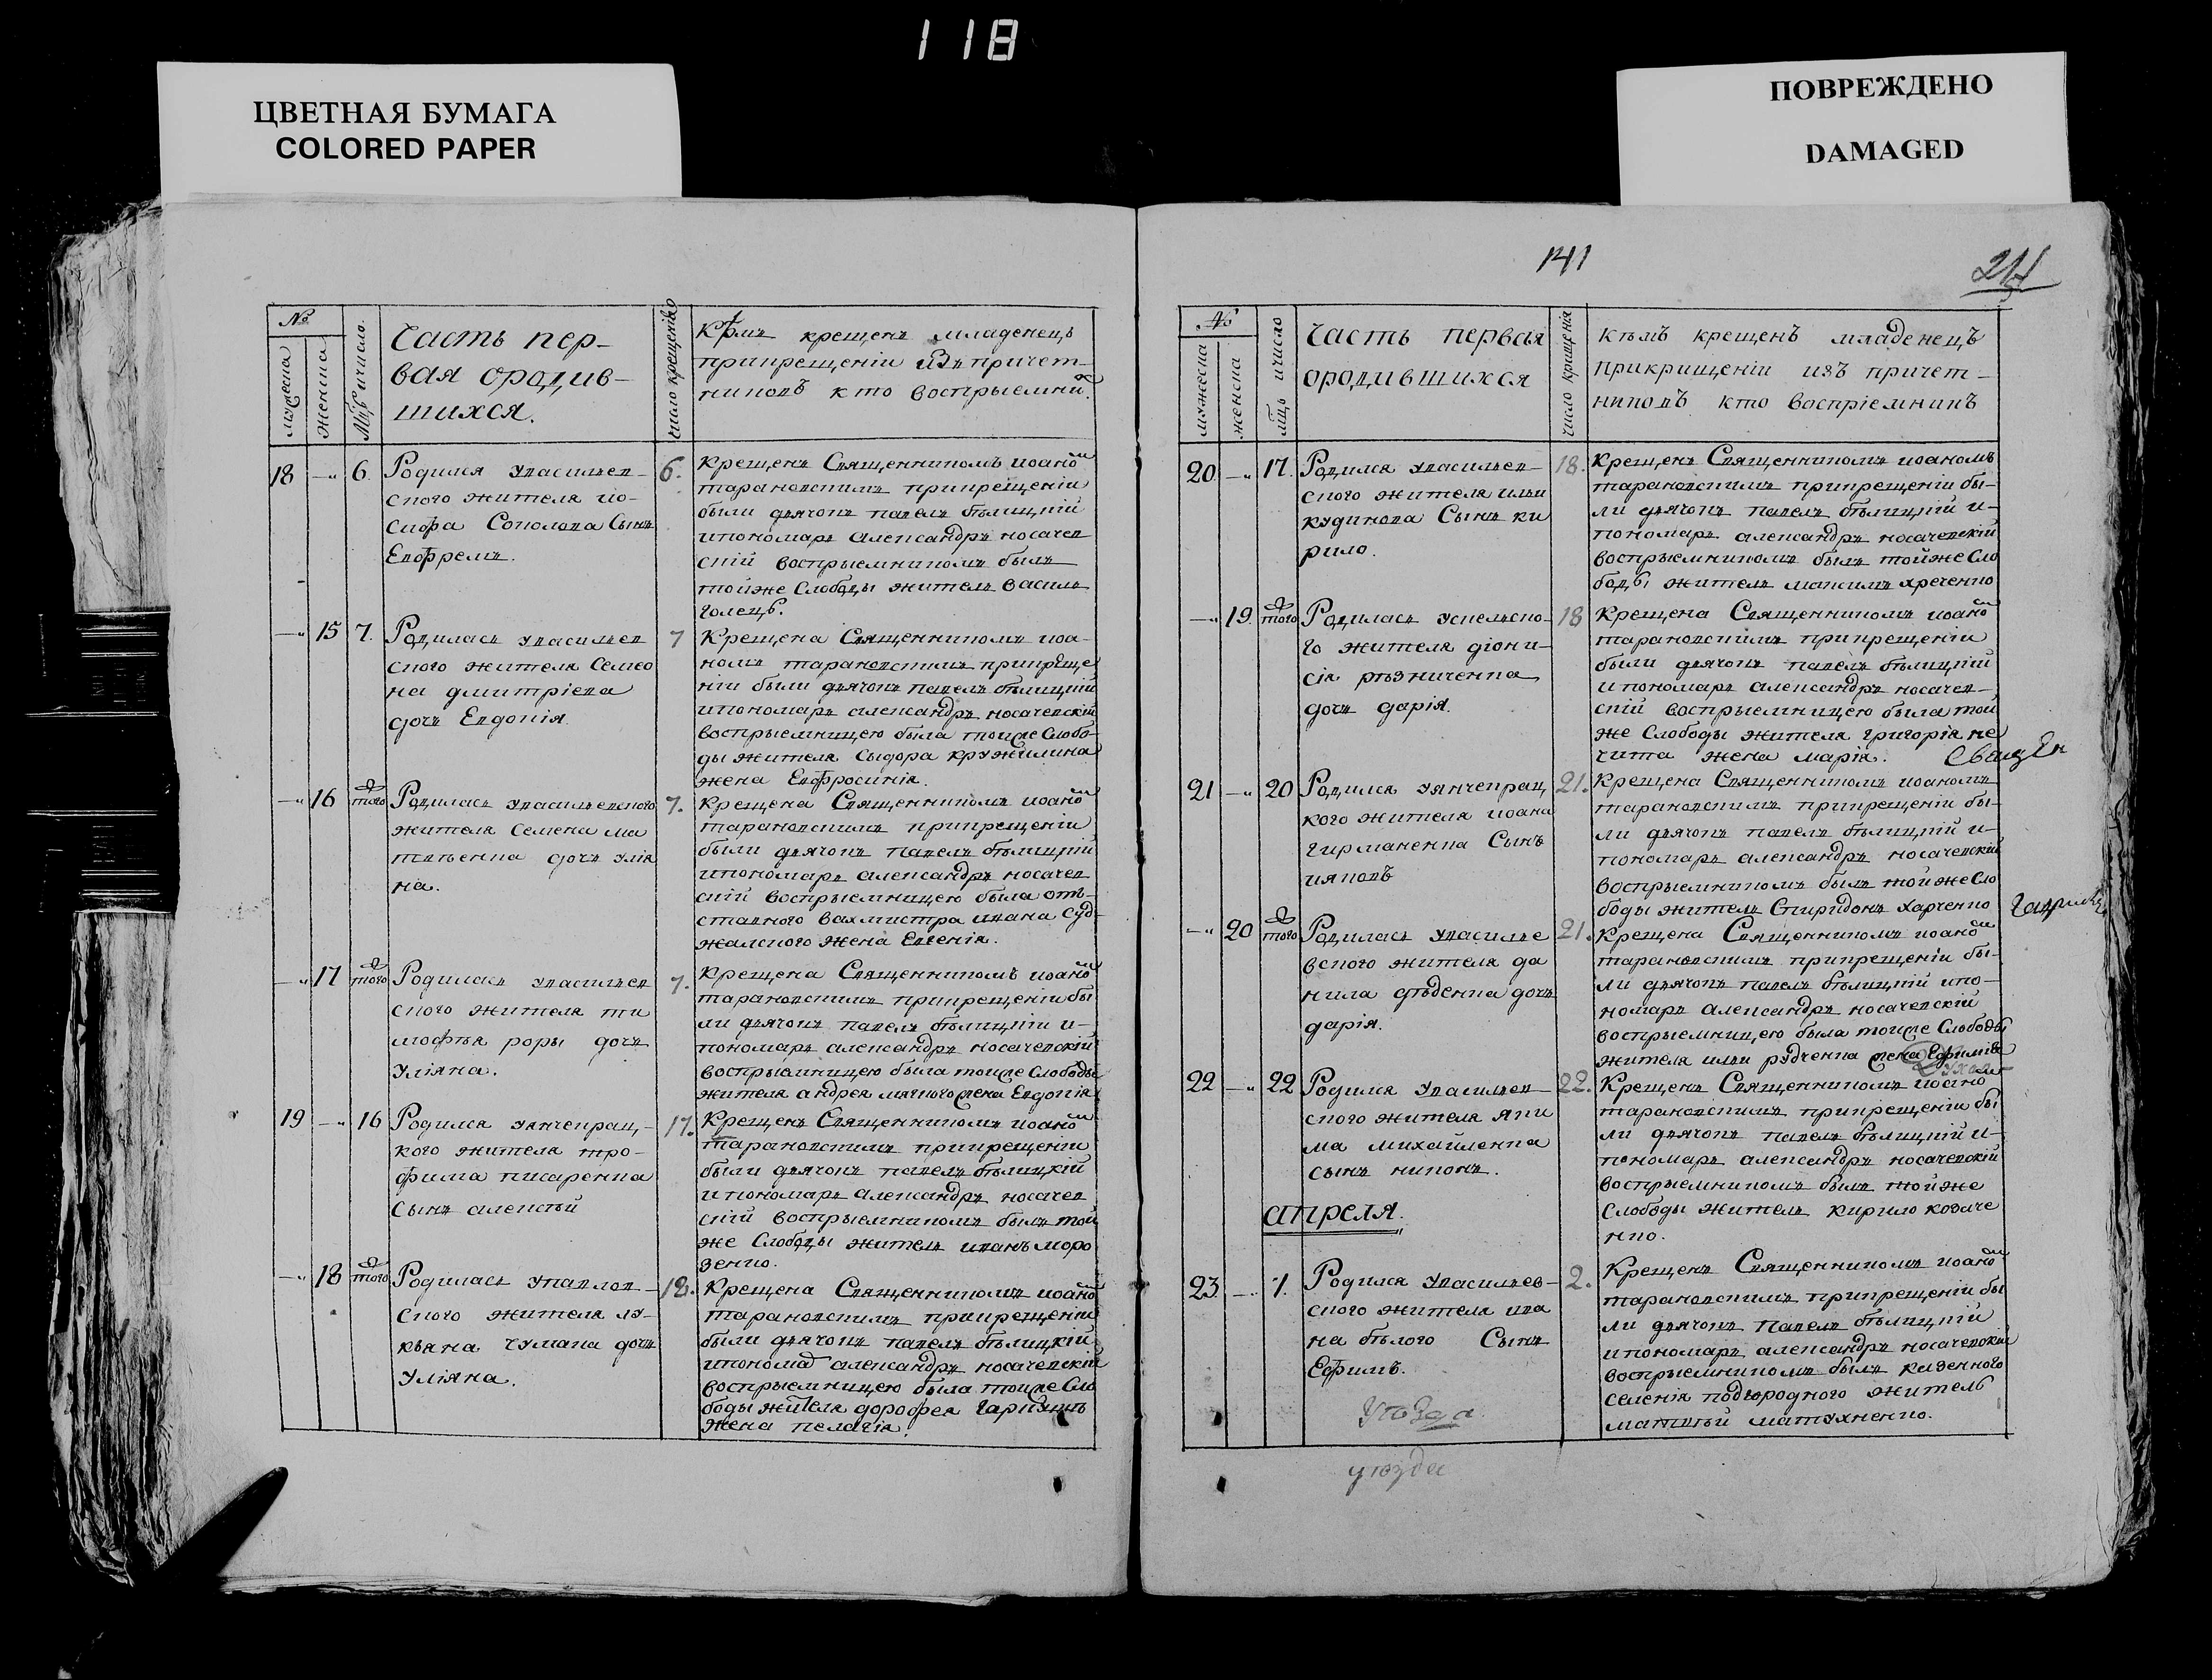 118
ЦВЕТНАЯ БУМАГА
COLORED PAPER
ПОВРЕЖДЕНО
DAMAGED
№
мужеска
женска
Мцъ ичисло.
Часть пер-
вая ородив-
шихся.
число крещенiю
Кѣмъ крещенъ младенецъ
прикрещенiи изъ причет-
никовъ кто воспрыемни
18 —„ 6. Родился увасильев-
ского жителя ио-
сифа Соколова Сынъ
Евфремъ.
6. крещенъ Священникомъ иоаномъ
тарановскимъ прикрещенiи
были дьячокъ павелъ бѣлицкiй
ипономарь александръ носачев
скiй воспрыемникомъ былъ
тойже Слободы житель василь
голецъ.
—„ 15 7. Родилась увасильев
ского жителя Семео
на дмитрiева
дочь Евдокiя.
7 Крещена Священникомъ иоа-
номъ тарановскимъ прикреще
нiи были дьячокъ павелъ бѣлицкiй
ипономарь александръ носачевскiй
воспрыемницею была тоиже Слобо-
ды жителя Сыдора кружилина
жена Евфросинiя.
—„ 16 тогожъ Родилась увасильевского
жителя Семена ма
твѣенка дочь улiя
на.
7. крещена Священникомъ иоаномъ
тарановскимъ прикрещенiи
были дьячокъ павелъ бѣлицкiй
ипономарь александръ носачев
скiй воспрыемницею была отъ-
ставного вахмистра ивана суд-
жалского жена Евгенiя.
—„ 17 тогожъ Родилась увасильев
ского жителя ти
мофѣя роры дочь
Улiяна.
7. Крещена Священникомъ иоаномъ
тарановскимъ прикрещенiи бы
ли дьячокъ павелъ бѣлицкiи и-
пономарь александръ носачевскiй
воспрыемницею была тоиже Слободы
жителя андрея мягкого жена Евдокiя
19 —„ 16 Родился уянчекрац-
кого жителя тро-
фима писаренка
сынъ алексѣй
17. Крещенъ Священникомъ иоаномъ
тарановскимъ прикрещенiи
были дьячокъ павелъ бѣлицкiй
ипономарь александръ носачев
скiй воспрыемникомъ былъ той
же Слободы житель иванъ моро
зенко.
—„ 18 тогожъ Родилась упавлов-
ского жителя лу-
кьяна чумака дочь
Улiяна.
18. Крещена Священникомъ иоаномъ
тарановскимъ прикрещенiи
были дьячокъ павелъ бѣлицкiй
ипономар александръ носачевскiй
воспрыемницею была тоиже Сло
боды жителя дорофея
жена пелагiя.
141
214
№
мужеска
женска
мцъ ичисло
Часть первая
ородившихся
число крищенiя
кѣмъ крещенъ младенецъ
прикрищенiи изъ причет-
никовъ кто воспрiемникъ
20 —„ 17. Родился увасильев-
ского жителя ильи
кудинова Сынъ ки
рило.
18. Крещенъ Священникомъ иоаномъ
тарановскимъ прикрещенiи бы-
ли дьячокъ павелъ бѣлицкiй и-
пономарь александръ носачевскiй
воспрыемникомъ былъ тойже Сло
боды житель максимъ яреченко
—„ 19. тогожъ Родилась
го жителя дiони-
сiя рѣзниченка
дочь дарiя.
18 Крещена Священникомъ иоаномъ
тарановскимъ прикрещенiи
были дьячокъ павелъ бѣлицкiй
ипономарь александръ носачев-
скiй воспрыемницею была той
же Слободы жителя григорiя не
чита жена марiя.
Священ
21 —„ 20 Родился уянчекрац
кого жителя иоана
гирманенка Сынъ
ияковъ
21. Крещена Священникомъ иоаномъ
тарановскимъ прикрещенiи бы-
ли дьячокъ павелъ бѣлицкiй и-
пономарь александръ носачевскiй
воспрыемникомъ былъ тойже Сло
боды житель Спиридонъ харченко
—„ 20 тогожъ Родилась увасилье
вского жителя да
нила дѣденка дочь
дарiя.
21. Крещена Священникомъ иоаномъ
тарановскимъ прикрещенiи бы-
ли дьячокъ павелъ бѣлицкiй ипо-
номарь александръ носачевскiй
воспрыемницею была тоиже Слободы
жителя ильи рудченка жена Ефимiя
22 —„ 22 Родился увасильев-
ского жителя яки
ма михайленка
сынъ никонъ.
22. Крещенъ Священникомъ иоаномъ
тарановскимъ прикрещенiи бы
ли дьячокъ павелъ бѣлицкiй и-
пономарь александръ носачевскiй
воспрыемникомъ былъ тойже
Слободы житель кирило козаче
нко.
апреля.
23 —„ 1. Родился увасильев-
ского жителя ива
на бѣлого Сынъ
Ефимъ.
2. Крещенъ Священникомъ иоаномъ
тарановскимъ прикрещенiи бы
ли дьячокъ павелъ бѣлицкiй
ипономарь александръ носачевскiй
воспрыемникомъ былъ казенного
селенiя подгородного житель
матвѣй матухненко.
уѣзда
уезда